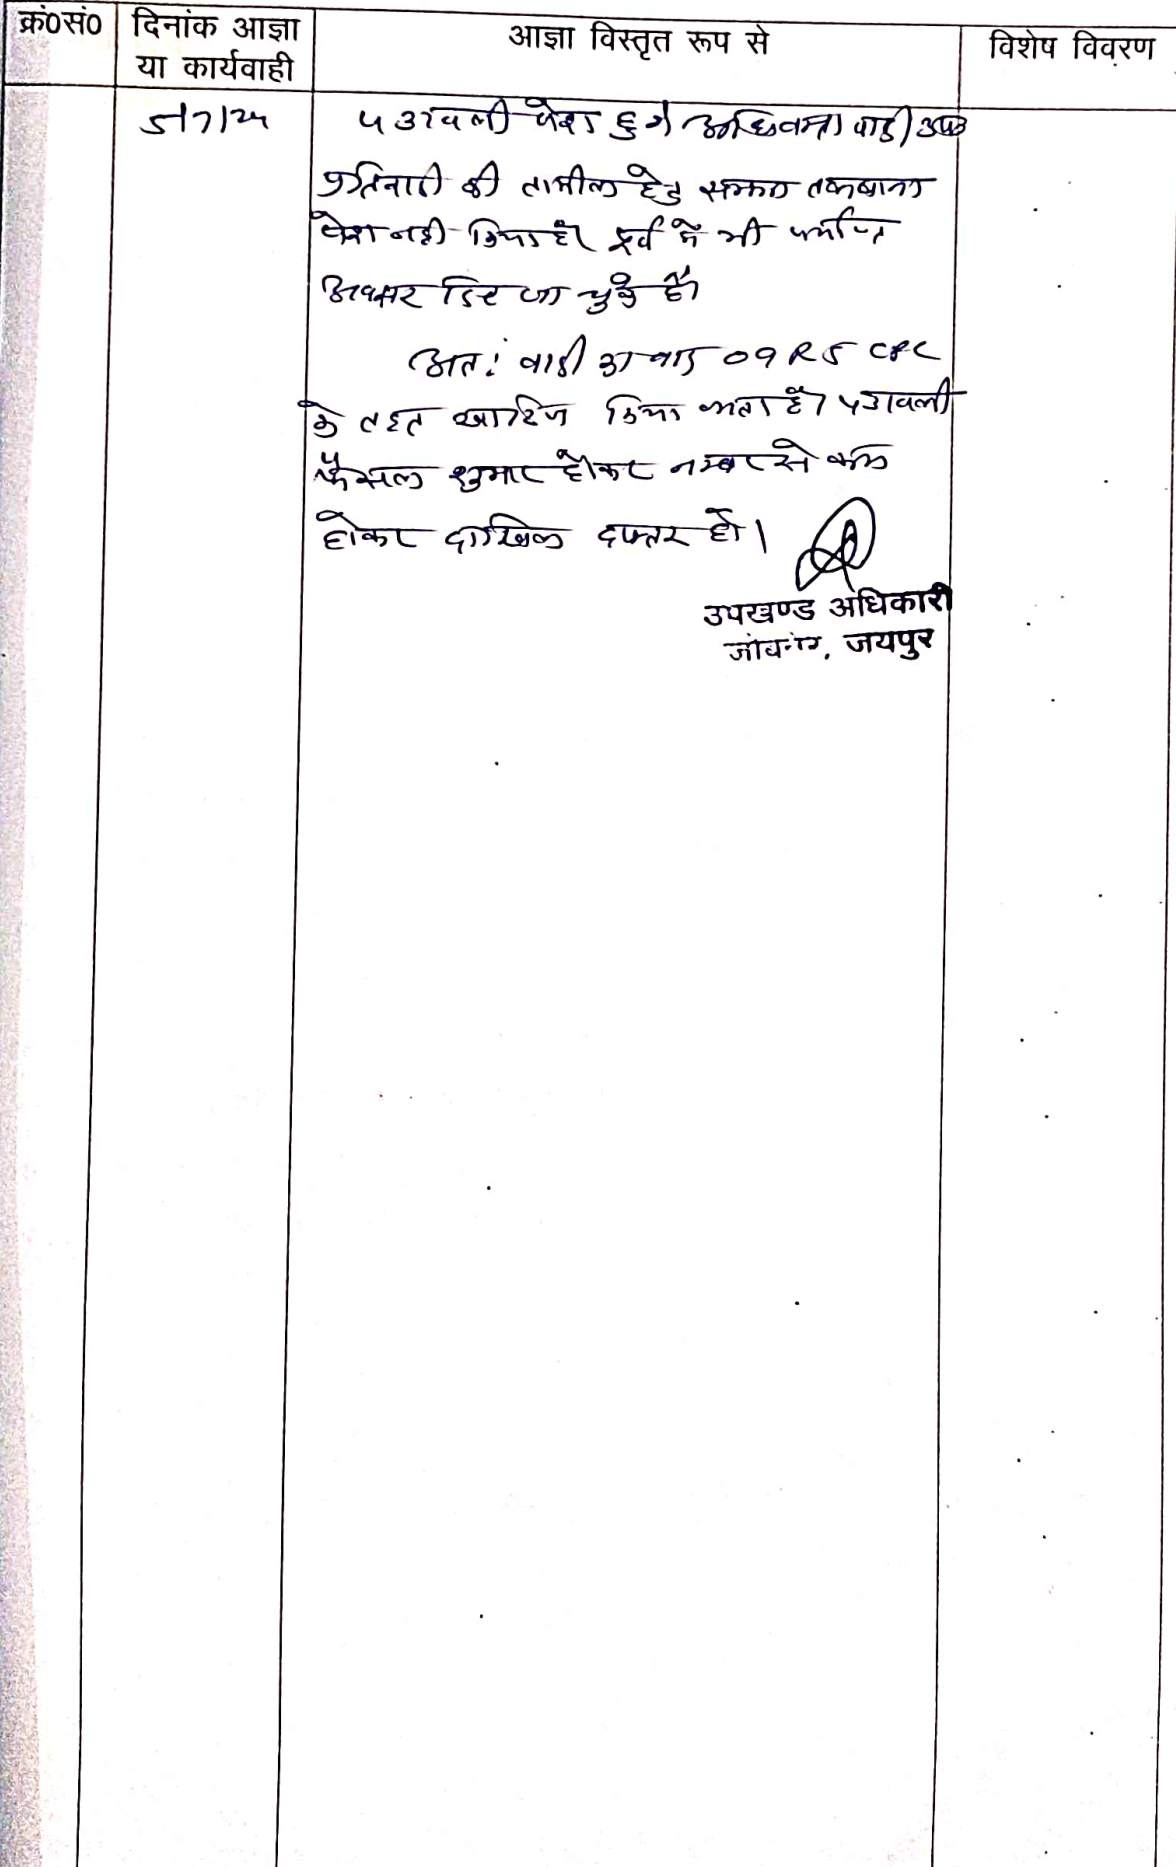 क्रं0सं0
दिनांक आज्ञा
या कार्यवाही
आज्ञा विस्तृत रूप से
विशेष विवरण
5/7/24
पत्रावली पेश हुई। अधिवक्ता वादी उप0
प्रतिवादी की तामील हेतु सम्मन तलबाना
पेश नही किया है। पूर्व में भी पर्याप्त
अवसर दिए जा चुके है।
अत: वादी का वाद O9 R5 CPC
के तहत खारिज किया जाता है। पत्रावली
फैसल शुमार होकर नम्बर से कम
होकर दाखिल दफ्तर हो।
उपखण्ड अधिकारी
जोबनेर, जयपुर